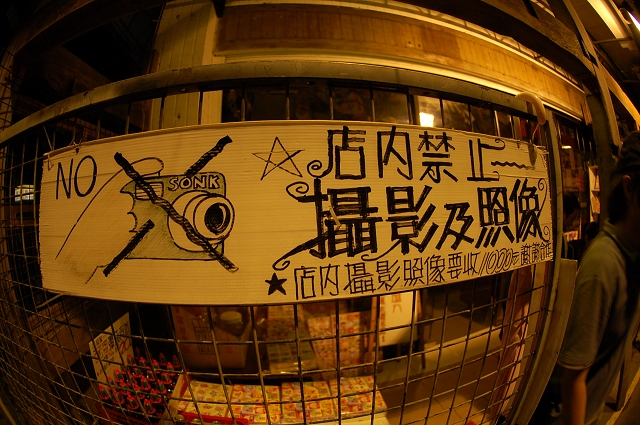 NO
SONK
店内禁止
攝影及照像
店内攝影照像要收1000元謝謝合作